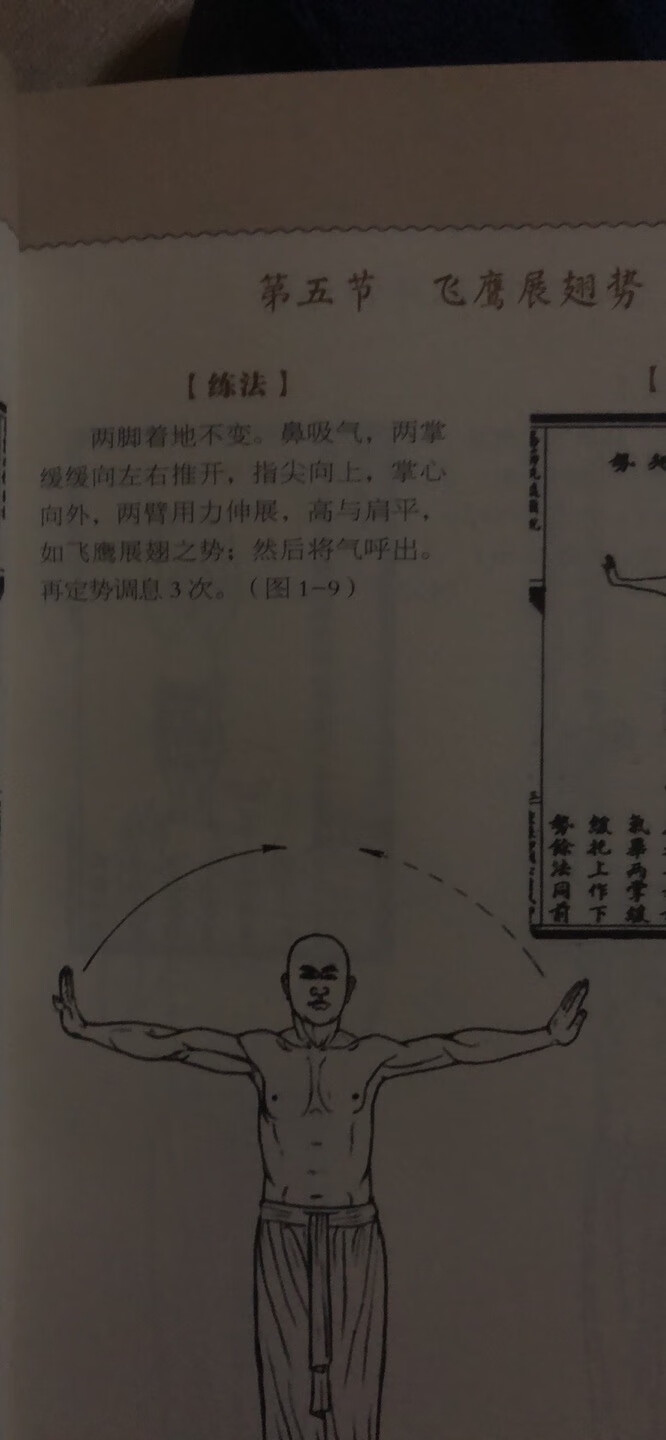 第五节 飞鹰展翅势
【练法】
两脚着地不变。鼻吸气，两掌
缓缓向左右推开，指尖向上，掌心
向外，两臂用力伸展，高与肩平，
如飞鹰展翅之势；然后将气呼出。
再定势调息3次。（图1-9）
【
气毕两掌缓
缓托上作下
势余法同前